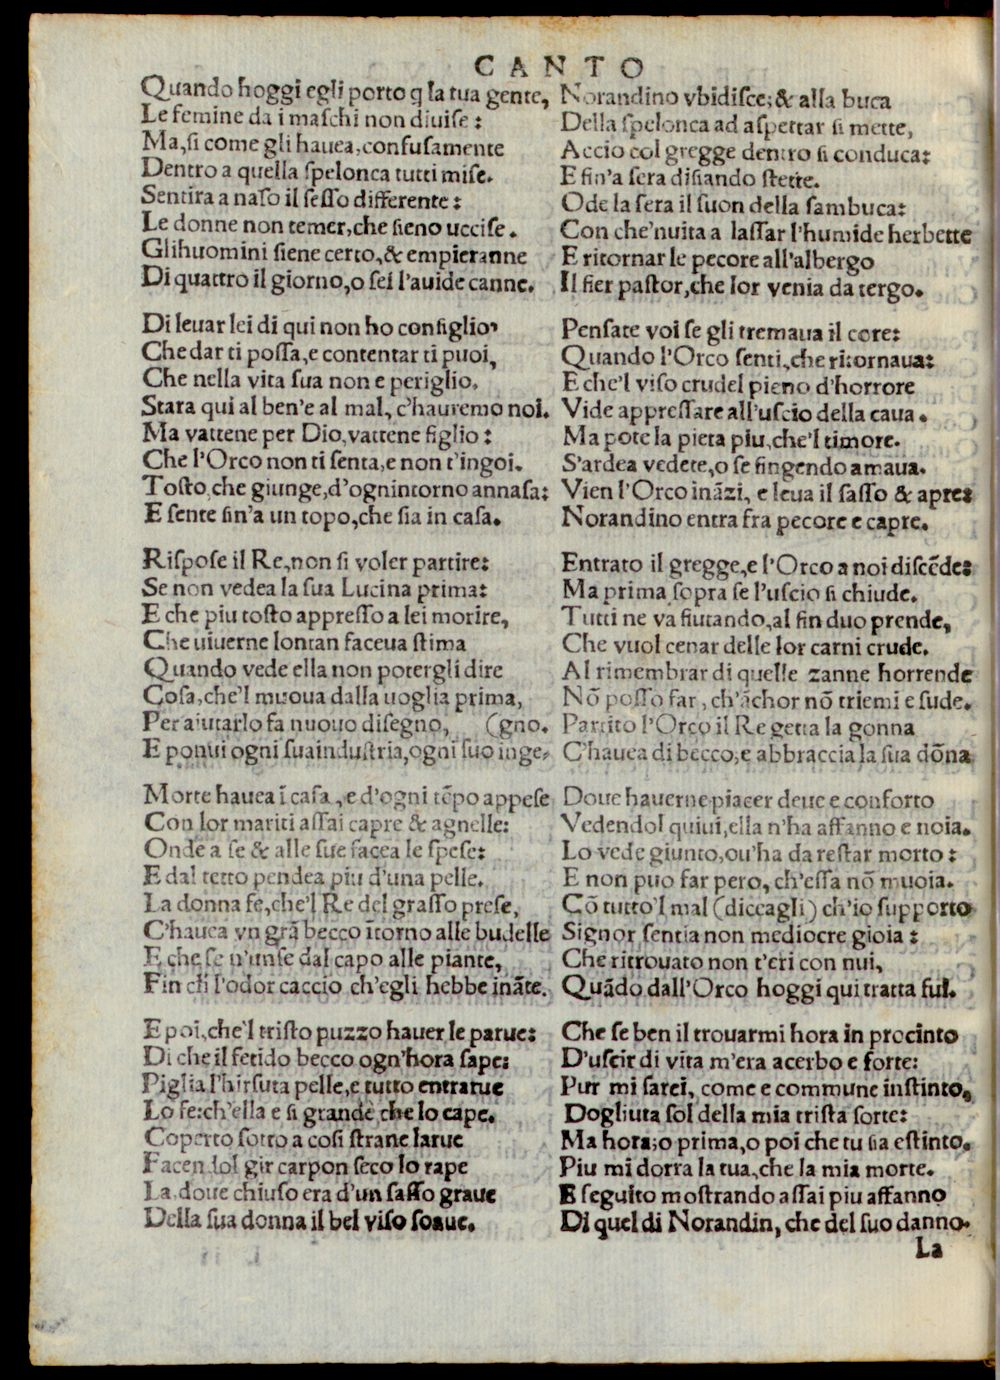 CANTO
Quando hoggi egli porto q̄ la tua gente,
Le femine da i maschi non diuise:
Ma, si come gli hauea, confusamente
Dentro a quella spelonca tutti mise.
Sentira a naso il sesso differente:
Le donne non temer, che sieno uccise.
Glihuomini siene certo, & empieranne
Di quattro il giorno, o sei l'auide canne.
Di leuar lei di qui non ho consiglio'
Che dar ti possa, e contentar ti puoi,
Che nella vita sua non e periglio.
Stara qui al ben'e al mal, c'hauremo noi.
Ma vattene per Dio, vattene figlio:
Che l'Orco non ti senta, e non t'ingoi.
Tosto, che giunge, d'ognintorno annasa:
E sente fin'a un topo, che sia in casa.
Rispose il Re, non si voler partire:
Se non vedea la sua Lucina prima:
E che piu tosto appresso a lei morire,
Che uiuerne lontan faceua stima
Quando vede ella non potergli dire
Cosa, che'l muoua dalla uoglia prima,
Per aiutarlo fa nuouo disegno, (gno.
E ponui ogni suaindustria, ogni suo inge-
Morte hauea ī casa, e d'ogni tēpo appese
Con lor mariti assai capre & agnelle:
Onde a se & alle sue facea le spese:
E dal tetto pendea piu d'una pelle.
La donna fe, che'l Re del grasso prese,
C'hauea vn grā becco ītorno alle budelle
E che se n'unse dal capo alle piante,
Fin ch l'odor caccio ch'egli hebbe ināte.
E poi, che'l tristo puzzo hauer le parue:
Di che il fetido becco ogn'hora sape:
Piglia l'hirsuta pelle, e tutto entratue
Lo fe: ch'ella e si grande che lo cape.
Coperto sotto a cosi strane larue
Facendol gir carpon seco lo rape
La doue chiuso era d'un sasso graue
Della sua donna il bel viso soaue.
Norandino vbidisce; & alla buca
Della spelonca ad aspettar si mette,
Accio col gregge dentro si conduca:
E fin'a sera disiando stette.
Ode la sera il suon della sambuca:
Con che'nuita a lassar l'humide herbette
E ritornar le pecore all'albergo
Il fier pastor, che lor venia da tergo.
Pensate voi se gli tremaua il core:
Quando l'Orco senti, che ritornaua:
E che'l viso crudel pieno d'horrore
Vide appressare all'uscio della caua.
Ma pote la pieta piu, che'l timore.
S'ardea vedete, o se fingendo amaua.
Vien l'Orco ināzi, e leua il sasso & apre:
Norandino entra fra pecore e capre.
Entrato il gregge, e l'Orco a noi discēde:
Ma prima sopra se l'uscio si chiude.
Tutti ne va fiutando, al fin duo prende,
Che vuol cenar delle lor carni crude.
Al rimembrar di quelle zanne horrende
Nō posso far, ch'āchor nō triemi e sude.
Partito l'Orco il Re getta la gonna
C'hauea di becco, e abbraccia la sua dōna
Doue hauerne piacer deue e conforto
Vedendol quiui, ella n'ha affanno e noia.
Lo vede giunto, ou'ha da restar morto:
E non puo far pero, ch'essa nō muoia.
Cō tutto'l mal (diccagli) ch'io supporto
Signor sentia non mediocre gioia:
Che ritrouato non t'eri con nui,
Quādo dall'Orco hoggi qui tratta fui.
Che se ben il trouarmi hora in procinto
D'uscir di vita m'era acerbo e forte:
Pur mi sarei, come e commune instinto,
Dogliuta sol della mia trista sorte:
Ma hora; o prima, o poi che tu sia estinto.
Piu mi dorra la tua, che la mia morte.
E seguito mostrando assai piu affanno
Di quel di Norandin, che del suo danno.
La